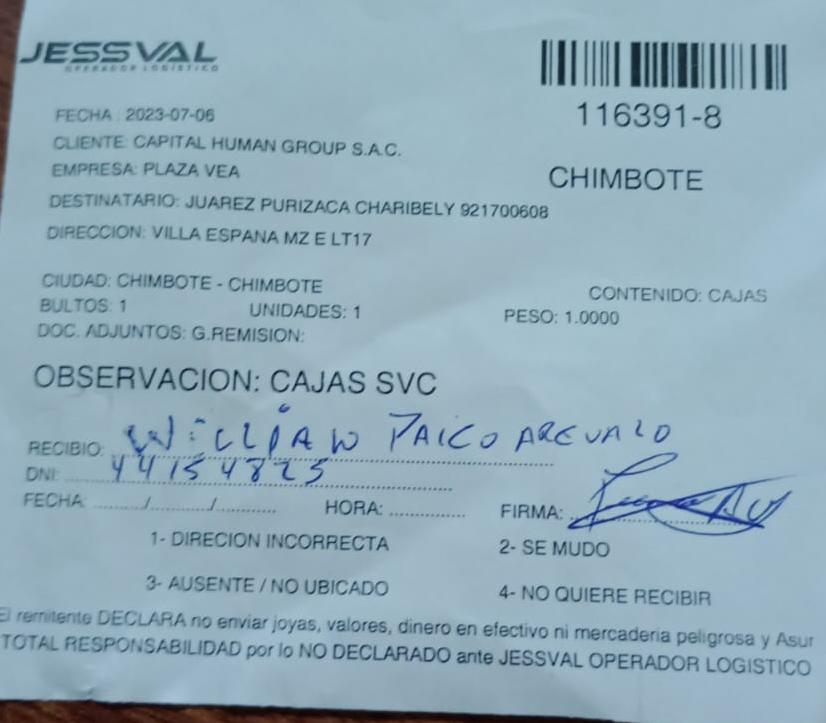 JESSVAL
OPERADOR LOGÍSTICO
116391-8
FECHA : 2023-07-06
CLIENTE: CAPITAL HUMAN GROUP S.A.C.
EMPRESA: PLAZA VEA
CHIMBOTE
DESTINATARIO: JUAREZ PURIZACA CHARIBELY 921700608
DIRECCION: VILLA ESPANA MZ E LT17
CIUDAD: CHIMBOTE - CHIMBOTE
CONTENIDO: CAJAS
BULTOS: 1 UNIDADES: 1 PESO: 1.0000
DOC. ADJUNTOS: G.REMISION:
OBSERVACION: CAJAS SVC
RECIBIO: WiLLiAN PAICO AREVALO
DNI: 44154825
FECHA: ........./........../........... HORA: .............. FIRMA:
1- DIRECION INCORRECTA 2- SE MUDO
3- AUSENTE / NO UBICADO 4- NO QUIERE RECIBIR
El remitente DECLARA no enviar joyas, valores, dinero en efectivo ni mercaderia peligrosa y Asur
TOTAL RESPONSABILIDAD por lo NO DECLARADO ante JESSVAL OPERADOR LOGISTICO